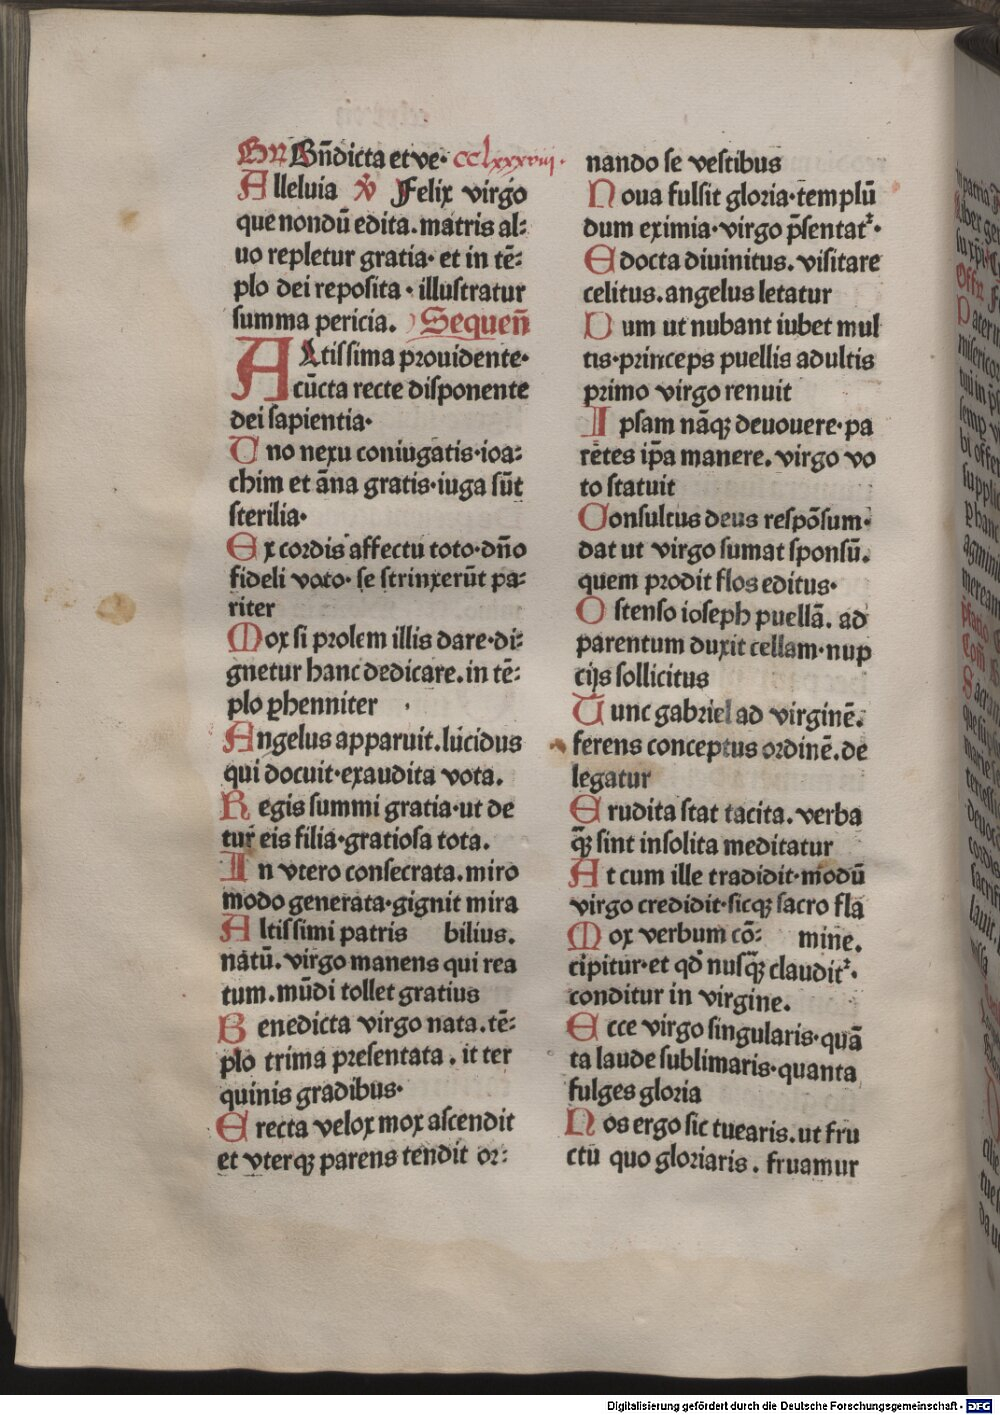 Gr̄ Bn̄dicta et ve· cclxxxviii·
Alleluia ℣ Felix virgo
que nondū edita. matris al⸗
uo repletur gratia· et in tē⸗
plo dei reposita· illustratur
summa pericia. Sequen̄
ALtissima prouidente·
cūcta recte disponente
dei sapientia·
Uno nexu coniugatis·ioa⸗
chim et āna gratis·iuga sūt
sterilia·
Ex cordis affectu toto·dn̄o
fideli voto· se strinxerūt pa⸗
riter
Mox si prolem illis dare·di⸗
gnetur hanc dedicare.in tē⸗
plo ꝑhenniter
Angelus apparuit.lucidus
qui docuit·exaudita vota.
Regis summi gratia·ut de
tur eis filia·gratiosa tota.
In vtero consecrata.miro
modo generata·gignit mira
Altissimi patris bilius.
natū.virgo manens qui rea
tum.mūdi tollet gratius
Benedicta virgo nata.tē⸗
plo trima presentata. it ter
quinis gradibus·
Erecta velox mox ascendit
et vterqꝫ parens tendit or⸗
nando se vestibus
Noua fulsit gloria·templū
dum eximia·virgo p̄sentatᷣ·
Edocta diuinitus. visitare
celitus.angelus letatur
Dum ut nubant iubet mul
tis·princeps puellis adultis
primo virgo renuit
Ipsam nāqꝫ deuouere·pa
rētes ip̄a manere. virgo vo
to statuit
Consultus deus respōsum·
dat ut virgo sumat sponsū.
quem prodit flos editus·
Ostenso ioseph puellā. ad
parentum duxit cellam·nup
cijs sollicitus
Tunc gabriel ad virginē.
ferens conceptus ordinē.de
legatur
Erudita stat tacita. verba
q̄ꝫ sint insolita meditatur
At cum ille tradidit·modū
virgo credidit·sicqꝫ sacro fla
Mox verbum cō⸗ mine.
cipitur·et qd̄ nusq̄ꝫ clauditᷣ·
conditur in virgine.
Ecce virgo singularis·quā
ta laude sublimaris·quanta
fulges gloria
Nos ergo sic tuearis.ut fru
ctu quo gloriaris. fruamur
Digitalisierung gefördert durch die Deutsche Forschungsgemeinschaft - DFG